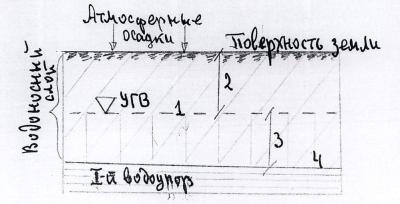 Атмосферные
осадки
Поверхность земли
Водоносный
слой
2
УГВ
1
3
4
I-й водоупор